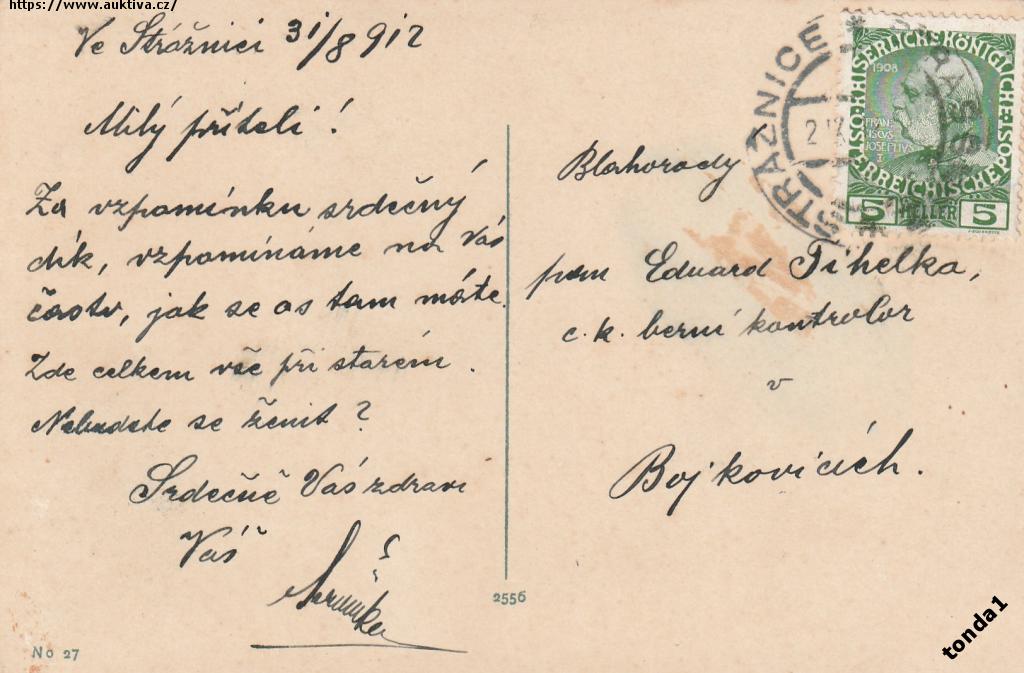 https://www.auktiva.cz/
Ve Strážnici 31/8 912
Milý příteli!
Za vzpomínku srdečný
dík, vzpomínáme na Vás
často, jak se as tam máte.
Zde celkem vše při starém.
Nebudete se ženit?
Srdečně Vás zdraví
Váš
No 27
2556
STRAŽNICE
2
KAISERLICHE KÖNIGLICHE
ÖSTERREICHISCHE POST
1908
FRAN
CISCVS
JOSEPHVS
I
5 HELLER 5
Blahorody
pan Eduard Tihelka,
c.k. berní kontrolor
v
Bojkovicích.
tonda1